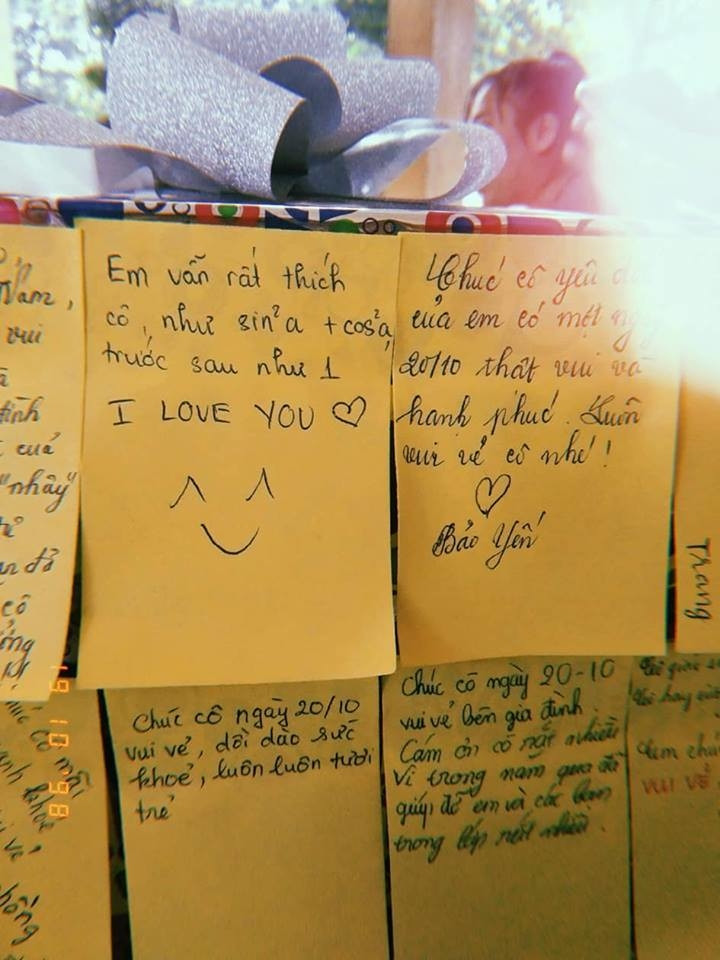 Năm,
vui
đình
cuả
"nhây"
cô
Em vẫn rất thích
cô, như sin²a + cos²a,
trước sau như 1
I LOVE YOU ♡
Chuć cô yêu
của em có một
20/10 thật vui và
hạnh phuć. Luôn
vui vẻ cô nhé!
♡
Bảo Yến
Trang
Chúc cô ngày 20/10
vui vẻ, dồi dào sức
khoẻ, luôn luôn tươi
trẻ
Chúc cô ngày 20-10
vui vẻ bên gia đình.
Cám ơn cô rất nhiều
vì trong năm qua đã
giúp đỡ em và các bạn
trong lớp rất nhiều.
vui vẻ
19 10 '98